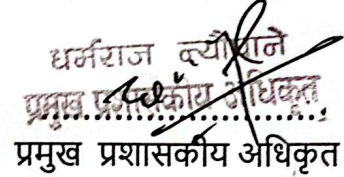 धर्मराज न्यौपाने
प्रमुख प्रशासकीय अधिकृत
....................
प्रमुख प्रशासकीय अधिकृत